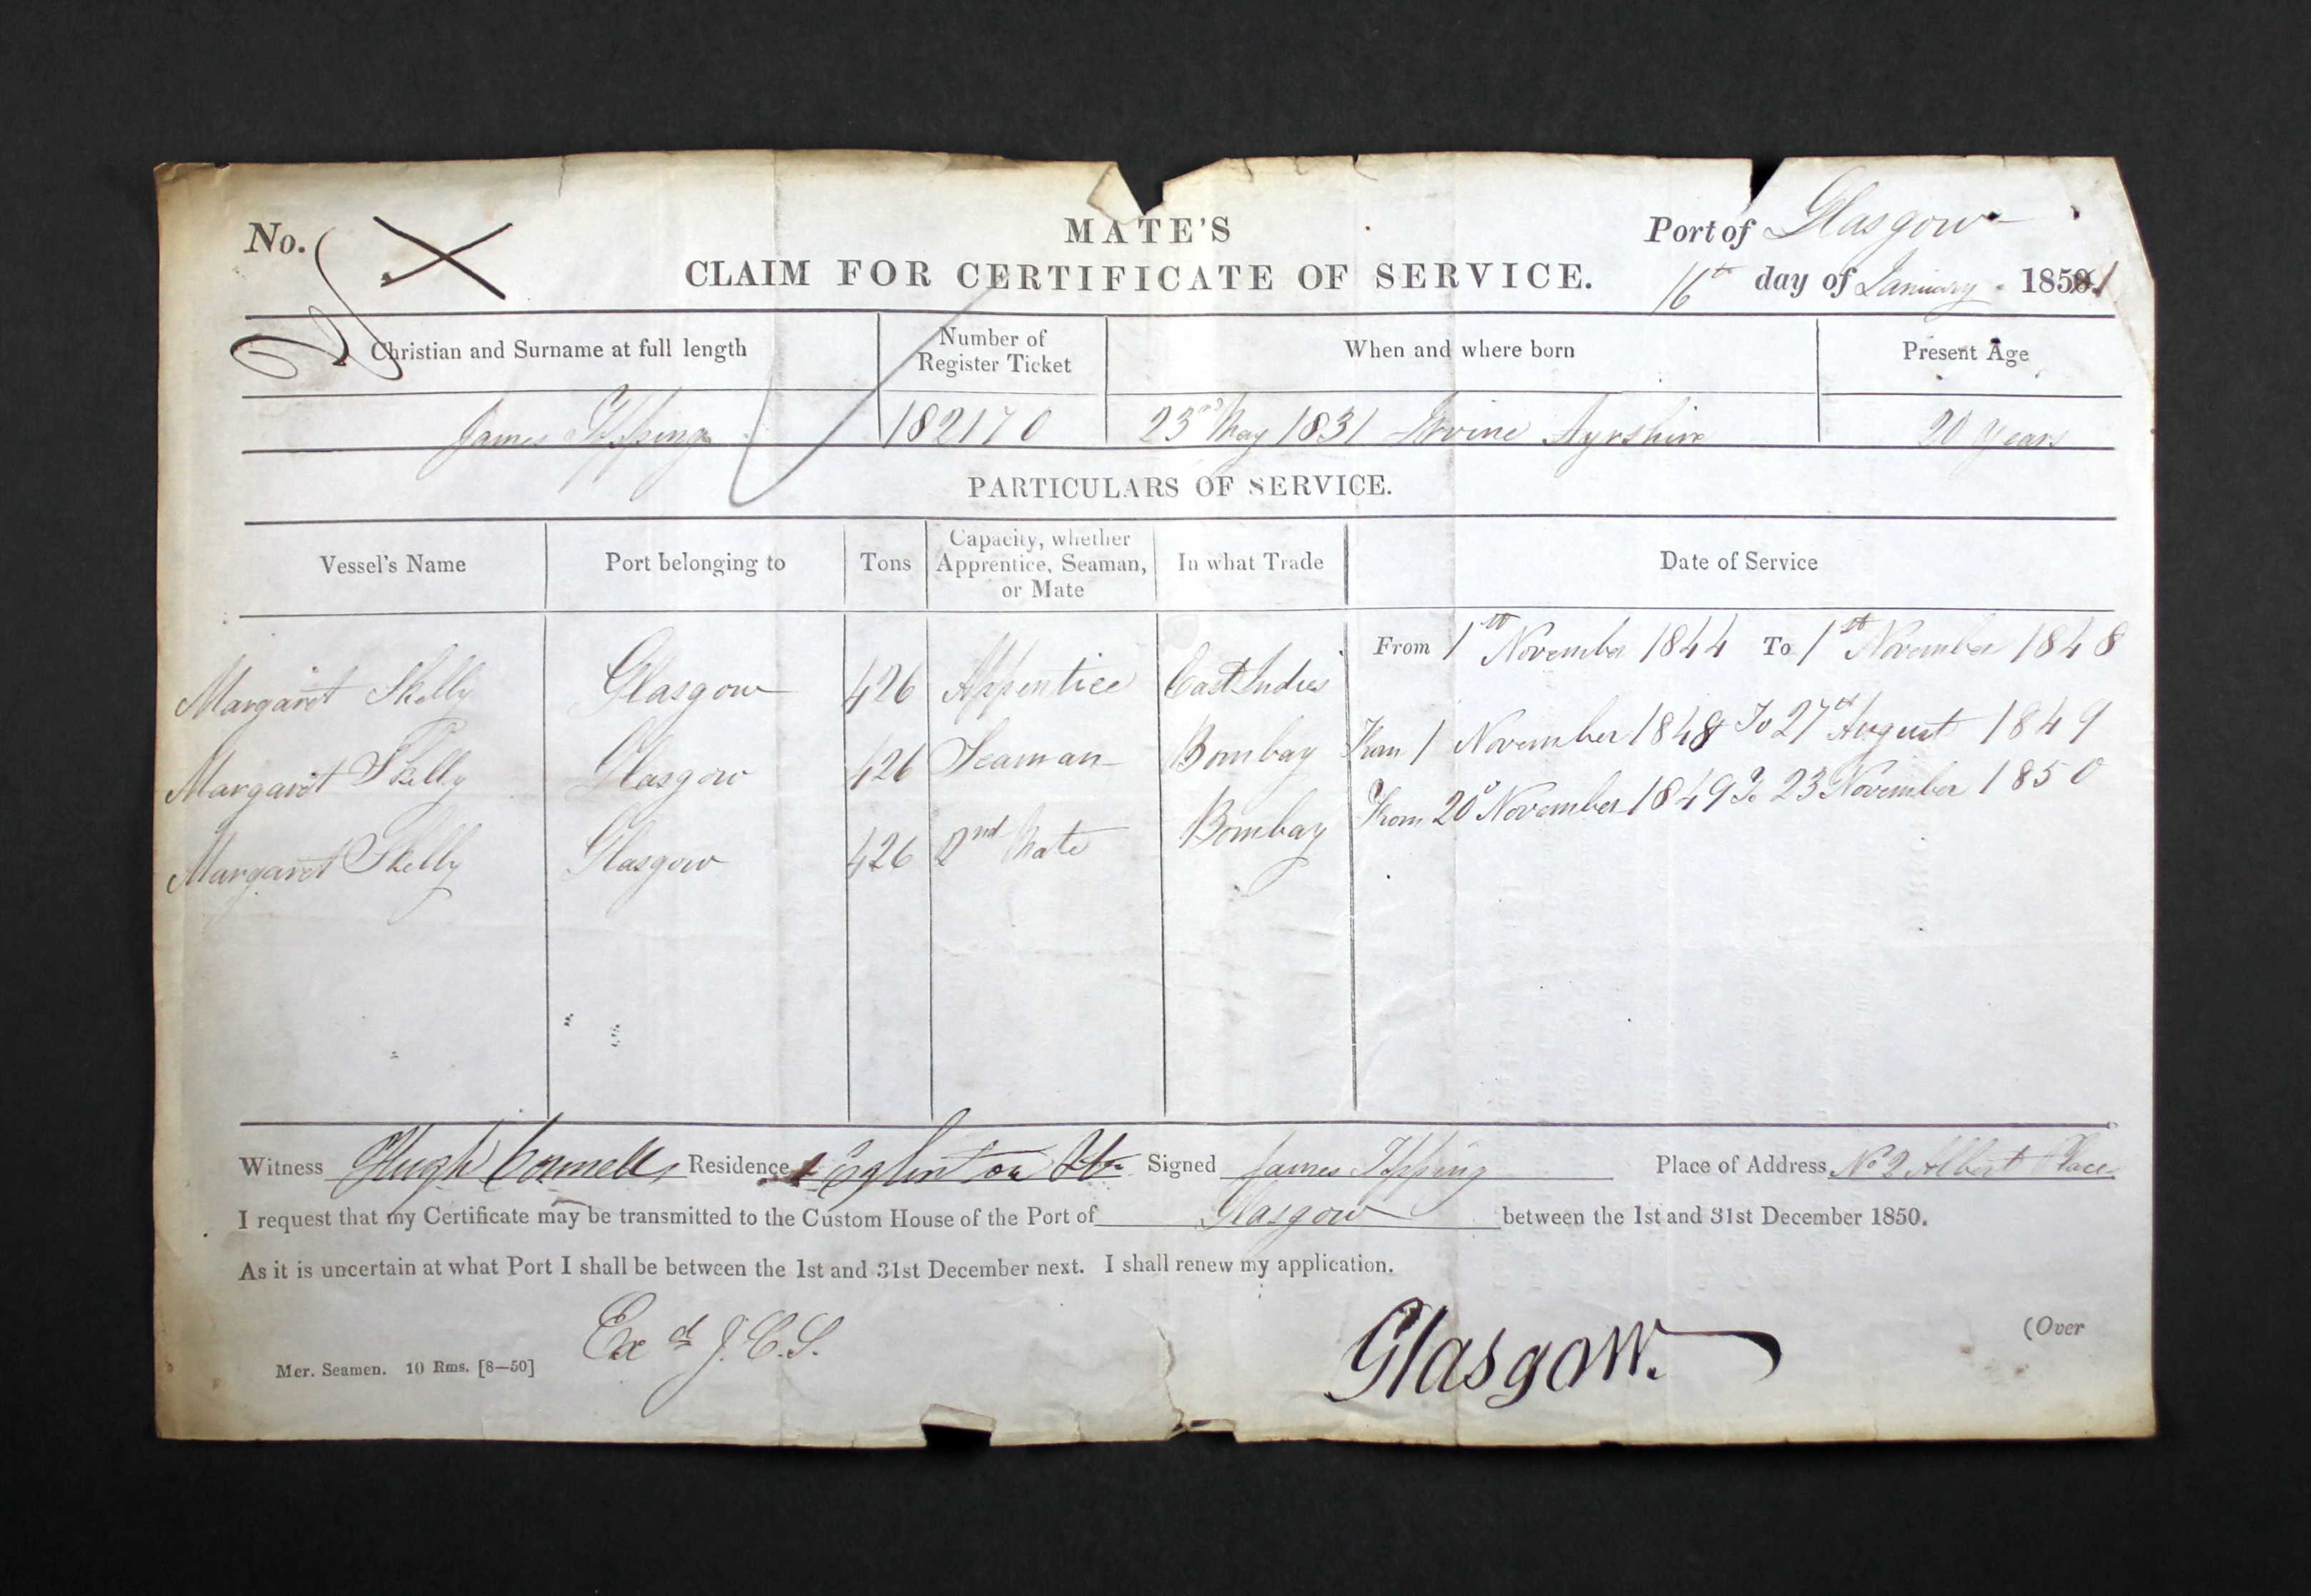 No.
MATE'S
Port of Glasgow
CLAIM FOR CERTIFICATE OF SERVICE.
16th day of January 1851
Christian and Surname at full length Number of Register Ticket When and where born Present Age
James Topping 182170 23rd May 1831 Irvine Ayrshire 20 Years
PARTICULARS OF SERVICE.
Vessel's Name Port belonging to Tons Capacity, whether Apprentice, Seaman, or Mate In what Trade Date of Service
Margaret Skelly Glasgow 426 Apprentice East Indies From 1st November 1844 To 1st November 1848
Margaret Skelly Glasgow 426 Seaman Bombay From 1 November 1848 To 27th August 1849
Margaret Skelly Glasgow 426 2nd Mate Bombay From 20th November 1849 To 23 November 1850
Witness Hugh Connell Residence Eglinton St. Signed James Topping Place of Address No 2 Albert Place
I request that my Certificate may be transmitted to the Custom House of the Port of Glasgow between the 1st and 31st December 1850.
As it is uncertain at what Port I shall be between the 1st and 31st December next. I shall renew my application.
Exd J.C.S.
Glasgow.
(Over
Mer. Seamen. 10 Rms. [8—50]